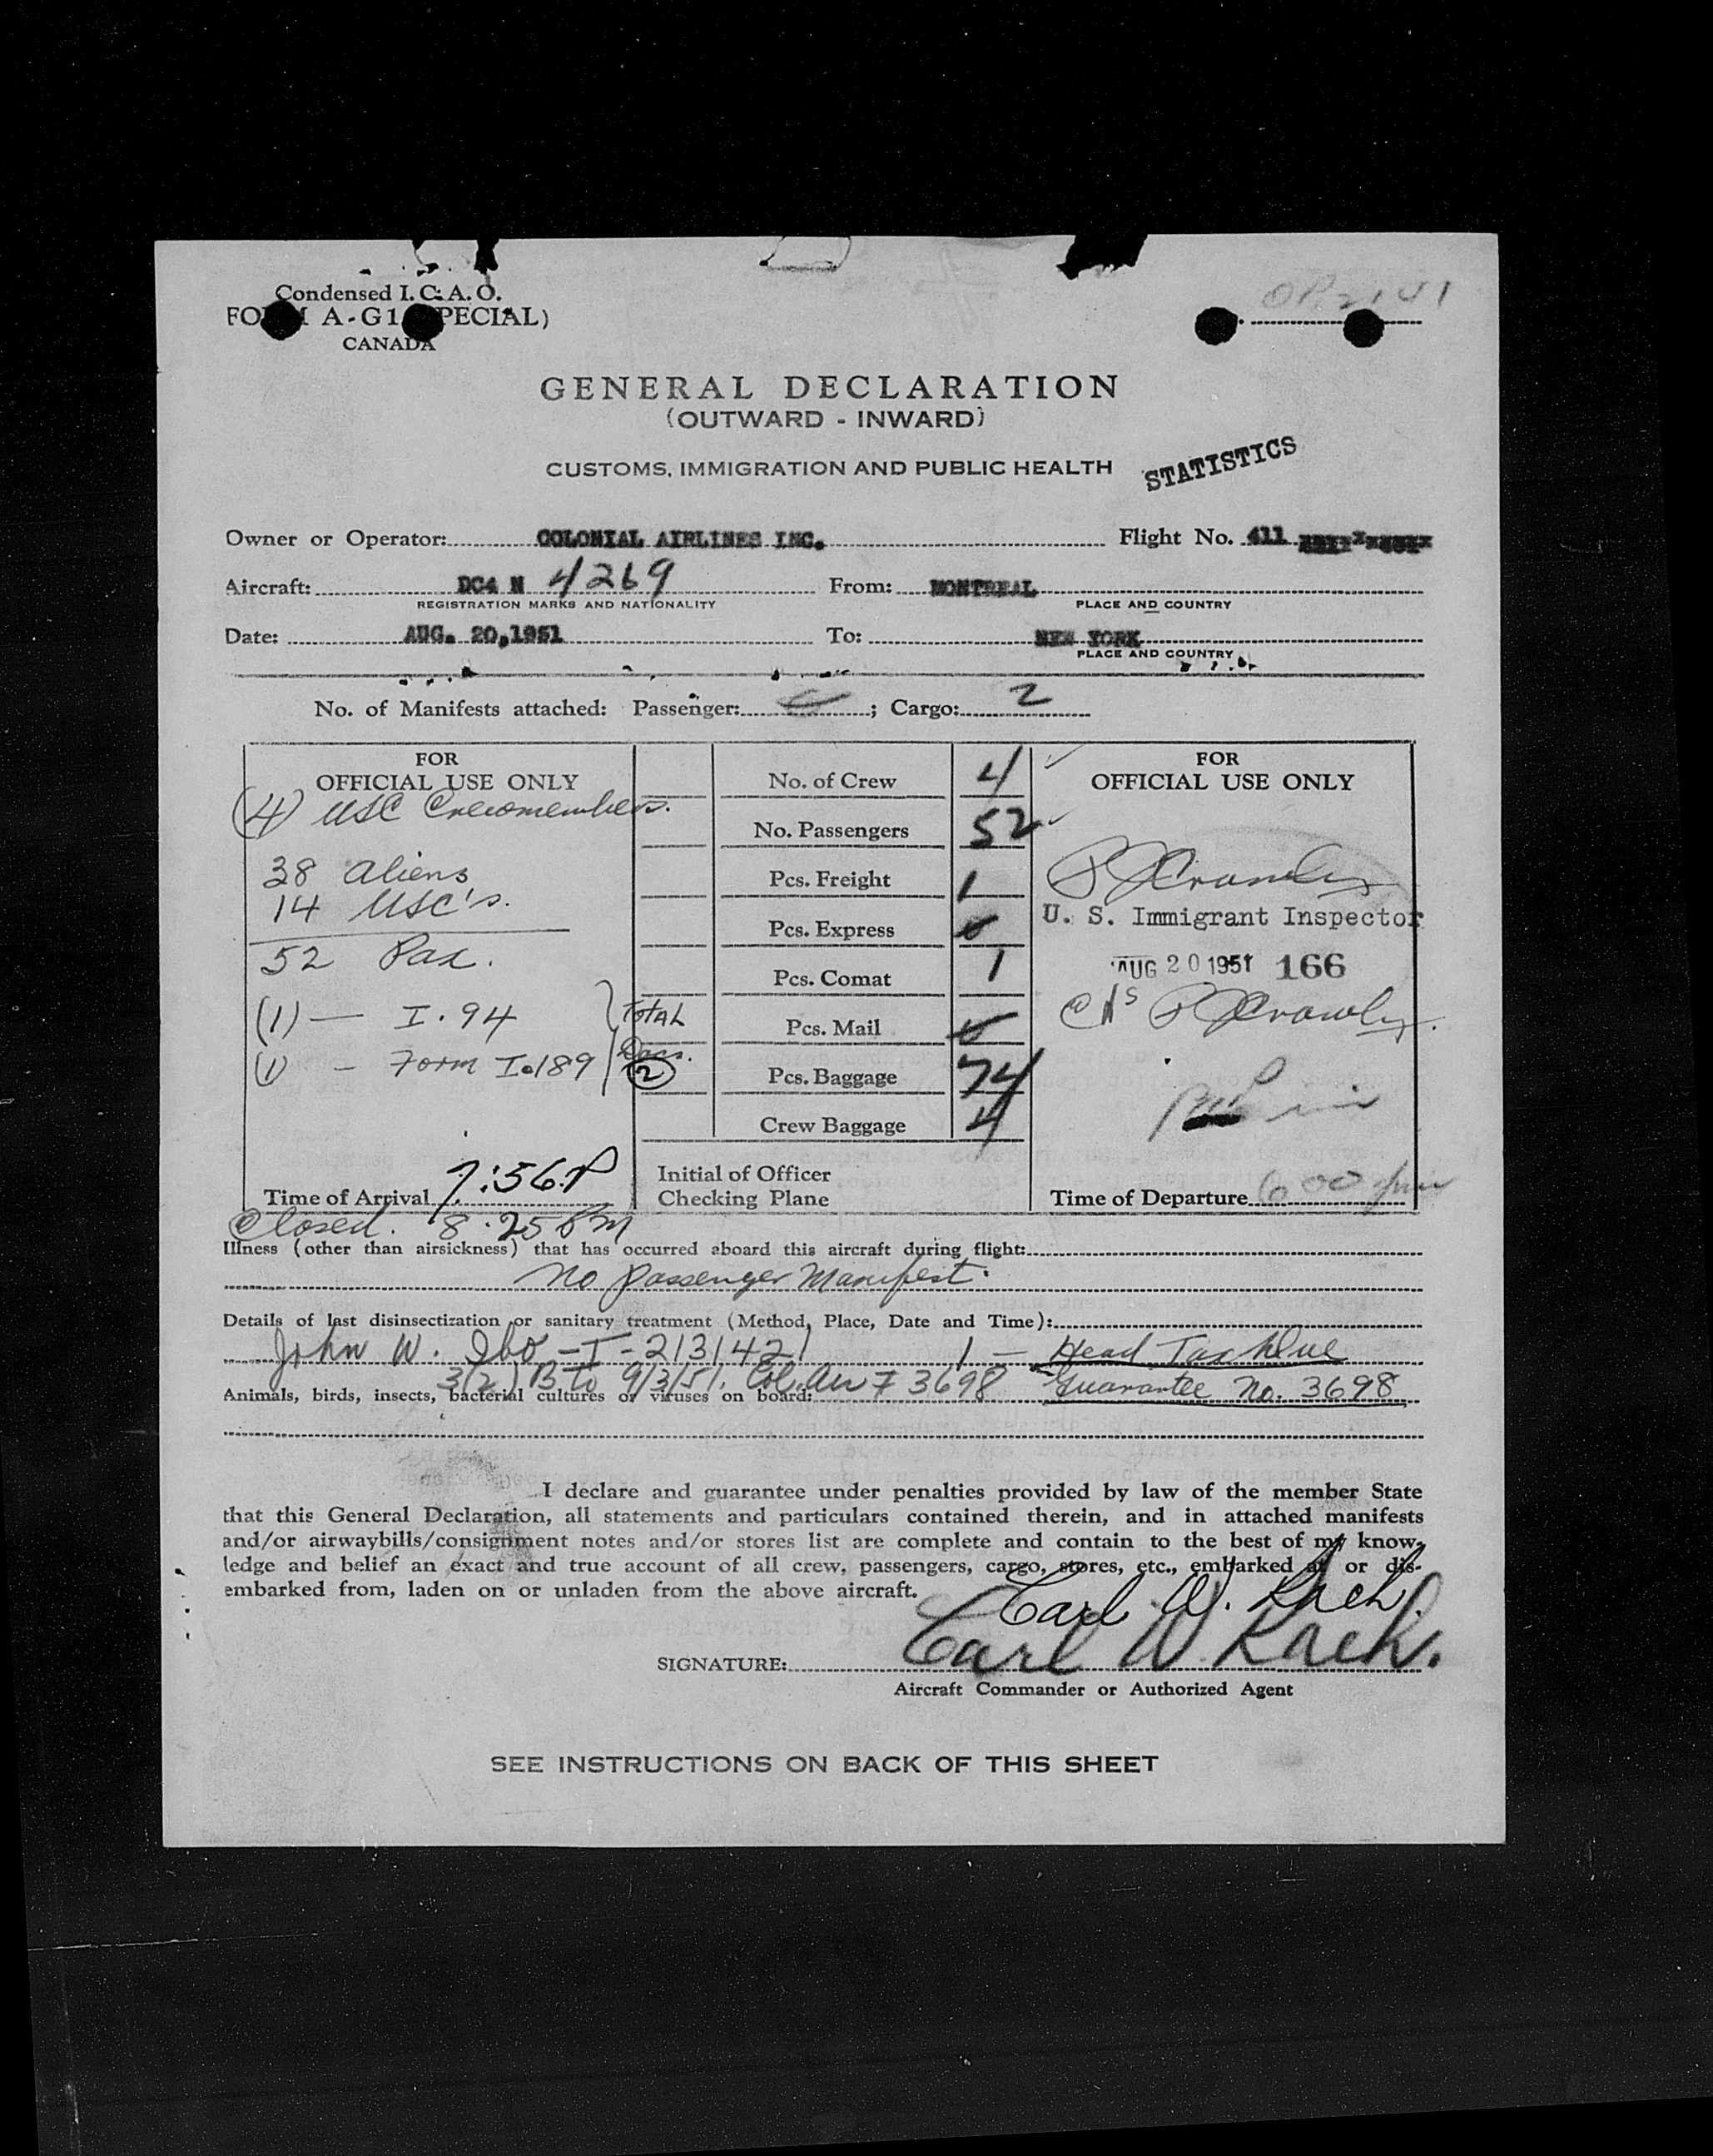 Condensed I.C.A.O.
A-G1
CANADA
GENERAL DECLARATION
(OUTWARD - INWARD)
CUSTOMS, IMMIGRATION AND PUBLIC HEALTH
STATISTICS
Owner or Operator: COLONIAL AIRLINES INC. Flight No. 411
Aircraft: DC4 N 4269 From: MONTREAL
REGISTRATION MARKS AND NATIONALITY PLACE AND COUNTRY
Date: AUG. 20,1951 To: NEW YORK
PLACE AND COUNTRY
No. of Manifests attached: Passenger: ; Cargo: 2
FOR
OFFICIAL USE ONLY
(4) USC Crewmembers.
38 Aliens
14 USC's.
52 Pax.
(1) — I.94
(1) - Form I-189
Total
Docs.
2
Time of Arrival 7:56P
Closed. 8:25 PM
No. of Crew 4
No. Passengers 52
Pcs. Freight 1
Pcs. Express 0
Pcs. Comat 1
Pcs. Mail 0
Pcs. Baggage 74
Crew Baggage 4
Initial of Officer
Checking Plane
FOR
OFFICIAL USE ONLY
U. S. Immigrant Inspector
AUG 20 1951 166
Time of Departure 600 pm
Illness (other than airsickness) that has occurred aboard this aircraft during flight:
No Passenger Manifest.
Details of last disinsectization or sanitary treatment (Method, Place, Date and Time):
John W. Ibo - I-2131421 1 — Head Tax Due
3(2) B to 9/3/51. Col. Air # 3698 Guarantee No. 3698
Animals, birds, insects, bacterial cultures or viruses on board:
I declare and guarantee under penalties provided by law of the member State
that this General Declaration, all statements and particulars contained therein, and in attached manifests
and/or airwaybills/consignment notes and/or stores list are complete and contain to the best of my know-
ledge and belief an exact and true account of all crew, passengers, cargo, stores, etc., embarked at or dis-
embarked from, laden on or unladen from the above aircraft.
Carl W. Kach.
SIGNATURE: Carl W. Kach.
Aircraft Commander or Authorized Agent
SEE INSTRUCTIONS ON BACK OF THIS SHEET